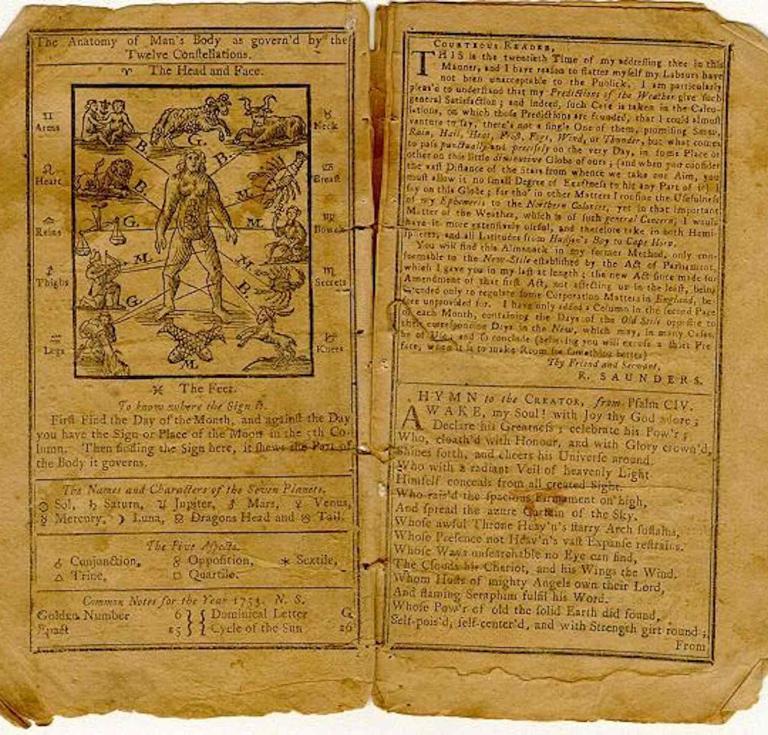 The Anatomy of Man's Body as govern'd by the
Twelve Constellations.
♈ The Head and Face.
♊
Arms
♉
Neck
♌
Heart
♋
Breast
♎
Reins
♍
Bowels
♐
Thighs
♏
Secrets
♒
Legs
♑
Knees
♓ The Feet.
To know where the Sign is.
First Find the Day of the Month, and against the Day
you have the Sign or Place of the Moon in the 5th Co-
lumn. Then finding the Sign here, it shews the Part of
the Body it governs.
The Names and Characters of the Seven Planets.
☉ Sol, ♄ Saturn, ♃ Jupiter, ♂ Mars, ♀ Venus,
☿ Mercury, ☽ Luna, ☊ Dragons Head and ☋ Tail.
The Five Aspects.
☌ Conjunction, ☍ Opposition, ⚹ Sextile,
△ Trine, □ Quartile.
Common Notes for the Year 1753. N. S.
Golden Number 6 } { Dominical Letter G
Epact 25 } { Cycle of the Sun 26
COURTEOUS READER,
THIS is the twentieth Time of my addressing thee in this
Manner, and I have reason to flatter myself my Labours have
not been unacceptable to the Publick. I am particularly
pleas'd to understand that my Predictions of the Weather give such
general Satisfaction; and indeed, such Care is taken in the Calcu-
lations, on which those Predictions are founded, that I could almost
venture to say, there's not a single One of them, promising Snow,
Rain, Hail, Heat, Frost, Fogs, Wind, or Thunder, but what comes
to pass punctually and precisely on the very Day, in some Place or
other on this little diminutive Globe of ours; (and when you consider
the vast Distance of the Stars from whence we take our Aim, you
must allow it no small Degree of Exactness to hit any Part of it) I
say on this Globe; for tho' in other Matters I confine the Usefulness
of my Ephemeris to the Northern Colonies, yet in that important
Matter of the Weather, which is of such general Concern, I would
have it more extensively useful, and therefore take in both Hemi-
spheres, and all Latitudes from Hudson's Bay to Cape Horn.
You will find this Almanack in my former Method, only con-
formable to the New-Stile established by the Act of Parliament,
which I gave you in my last at length; the new Act since made for
Amendment of that first Act, not affecting us in the least, being
intended only to regulate some Corporation Matters in England, be-
fore unprovided for. I have only added a Column in the second Page
of each Month, containing the Days of the Old Stile opposite to
their corresponding Days in the New, which may, in many Cases,
be of Use; and so conclude (believing you will excuse a short Pre-
face, when it is to make Room for something better)
Thy Friend and Servant,
R. SAUNDERS.
HYMN to the CREATOR, from Psalm CIV.
AWAKE, my Soul! with Joy thy God adore;
Declare his Greatness; celebrate his Pow'r;
Who, cloath'd with Honour, and with Glory crown'd,
Shines forth, and cheers his Universe around.
Who with a radiant Veil of heavenly Light
Himself conceals from all created Sight.
Who rais'd the spacious Firmament on high,
And spread the azure Curtain of the Sky.
Whose awful Throne Heav'n's starry Arch sustains,
Whose Presence not Heav'n's vast Expanse restrains.
Whose Ways unsearchable no Eye can find,
The Clouds his Chariot, and his Wings the Wind.
Whom Hosts of mighty Angels own their Lord,
And flaming Seraphim fulfil his Word.
Whose Pow'r of old the solid Earth did found,
Self-pois'd, self-center'd, and with Strength girt round;
From